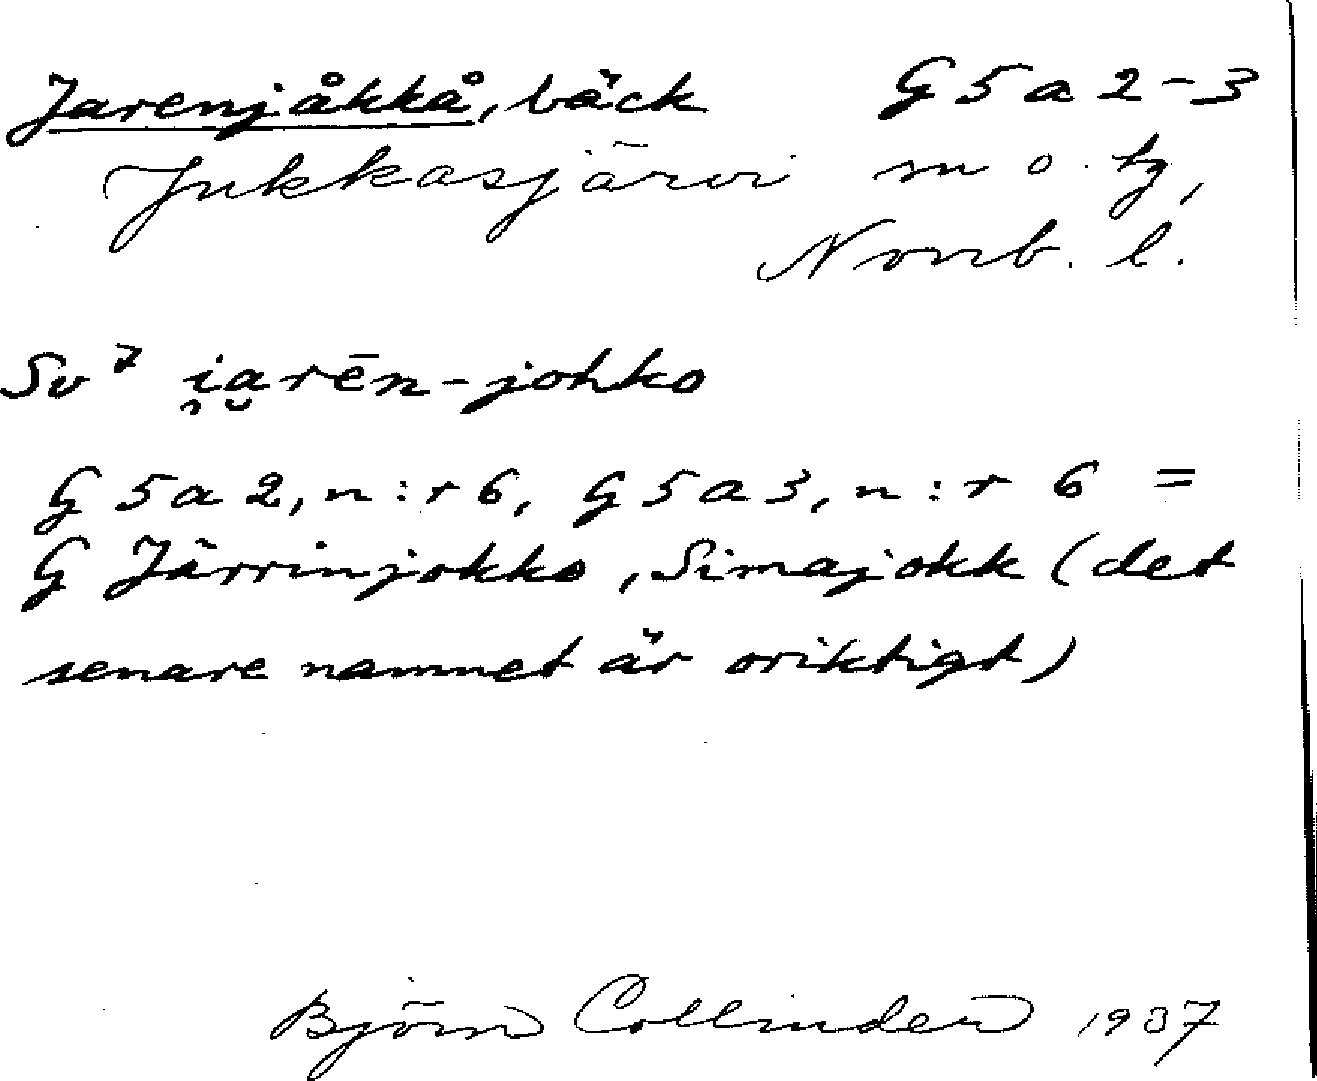 Jarenjåkkå, bäck G5a2-3
Jukkasjärvi sn o. tg,
Norrb. l.
Sv⁷ i̯a̮rēn-johko
G5a2, n:r 6, G5a3, n:r 6 =
G Järrinjokko, Simajokk (det
senare namnet är oriktigt)
Björn Collinder 1937